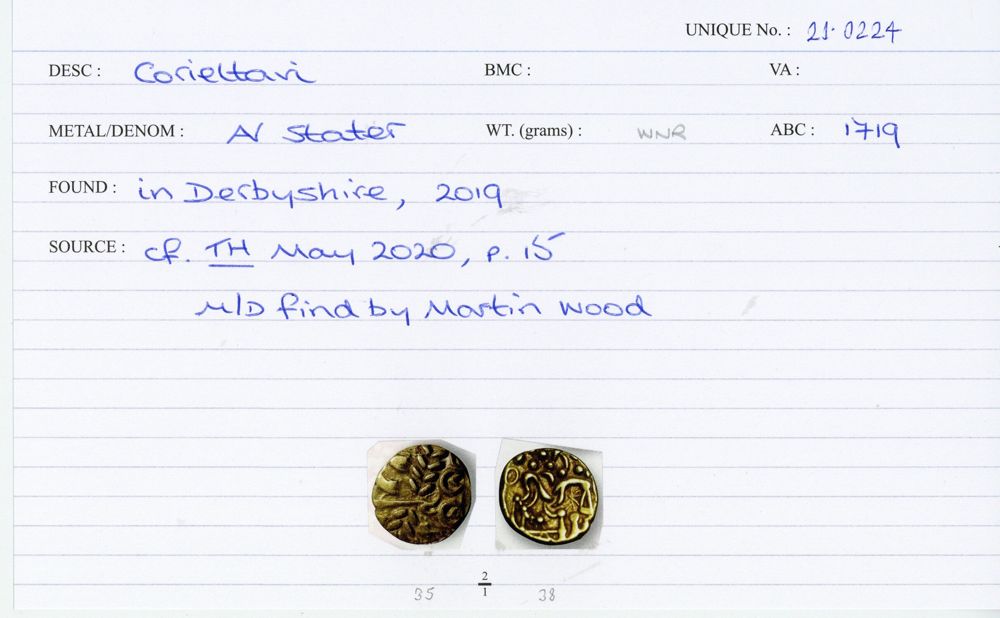 UNIQUE No. : 21.0224
DESC : Corieltavi BMC : VA :
METAL/DENOM : AV Stater WT. (grams) : WNR ABC : 1719
FOUND : in Derbyshire, 2019
SOURCE : cf. TH May 2020, p. 15
M/D find by Martin Wood
2
1
35 38